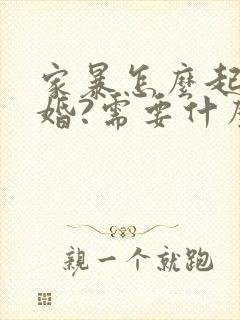 家暴怎麼起
婚?需要什麼
親一个就跑